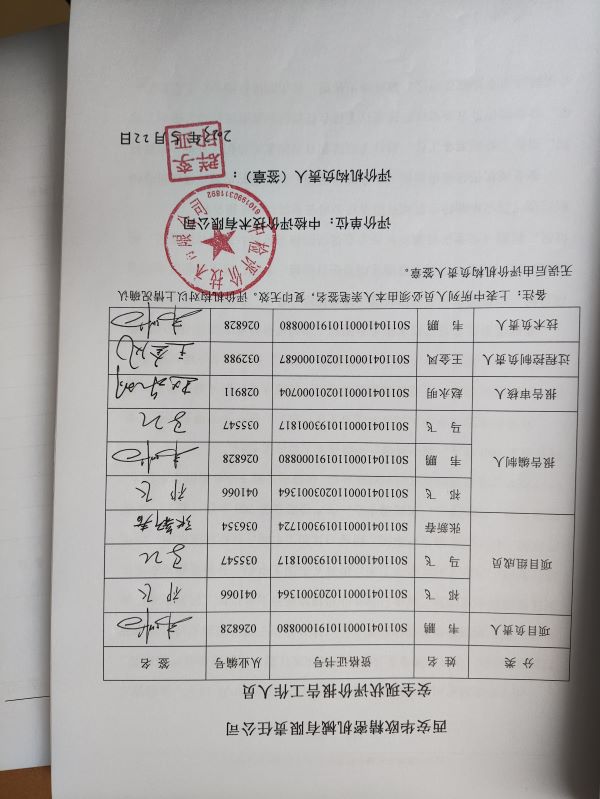 西安华欧精密机械有限责任公司
安全现状评价报告工作人员
分 类 姓 名 资格证书号 从业编号 签 名
项目负责人 韦 鹏 S011041000110191000880 026828
项目组成员 祁 飞 S011041000110203001364 041066 祁飞
马 飞 S011041000110193001817 035547 马飞
张新春 S011041000110193001724 036354 张新春
报告编制人 祁 飞 S011041000110203001364 041066 祁飞
韦 鹏 S011041000110191000880 026828
马 飞 S011041000110193001817 035547 马飞
报告审核人 赵永明 S011041000110201000704 028911 赵永明
过程控制负责人 王金凤 S011041000110201000687 032988 王金凤
技术负责人 韦 鹏 S011041000110191000880 026828
备注：上表中所列人员必须由本人亲笔签名，复印无效。评价机构对以上情况确认
无误后由评价机构负责人签章。
评价单位：中检评价技术有限公司
评价机构负责人（签章）：
年5月22日
中检评价技术有限公司
6101990311892